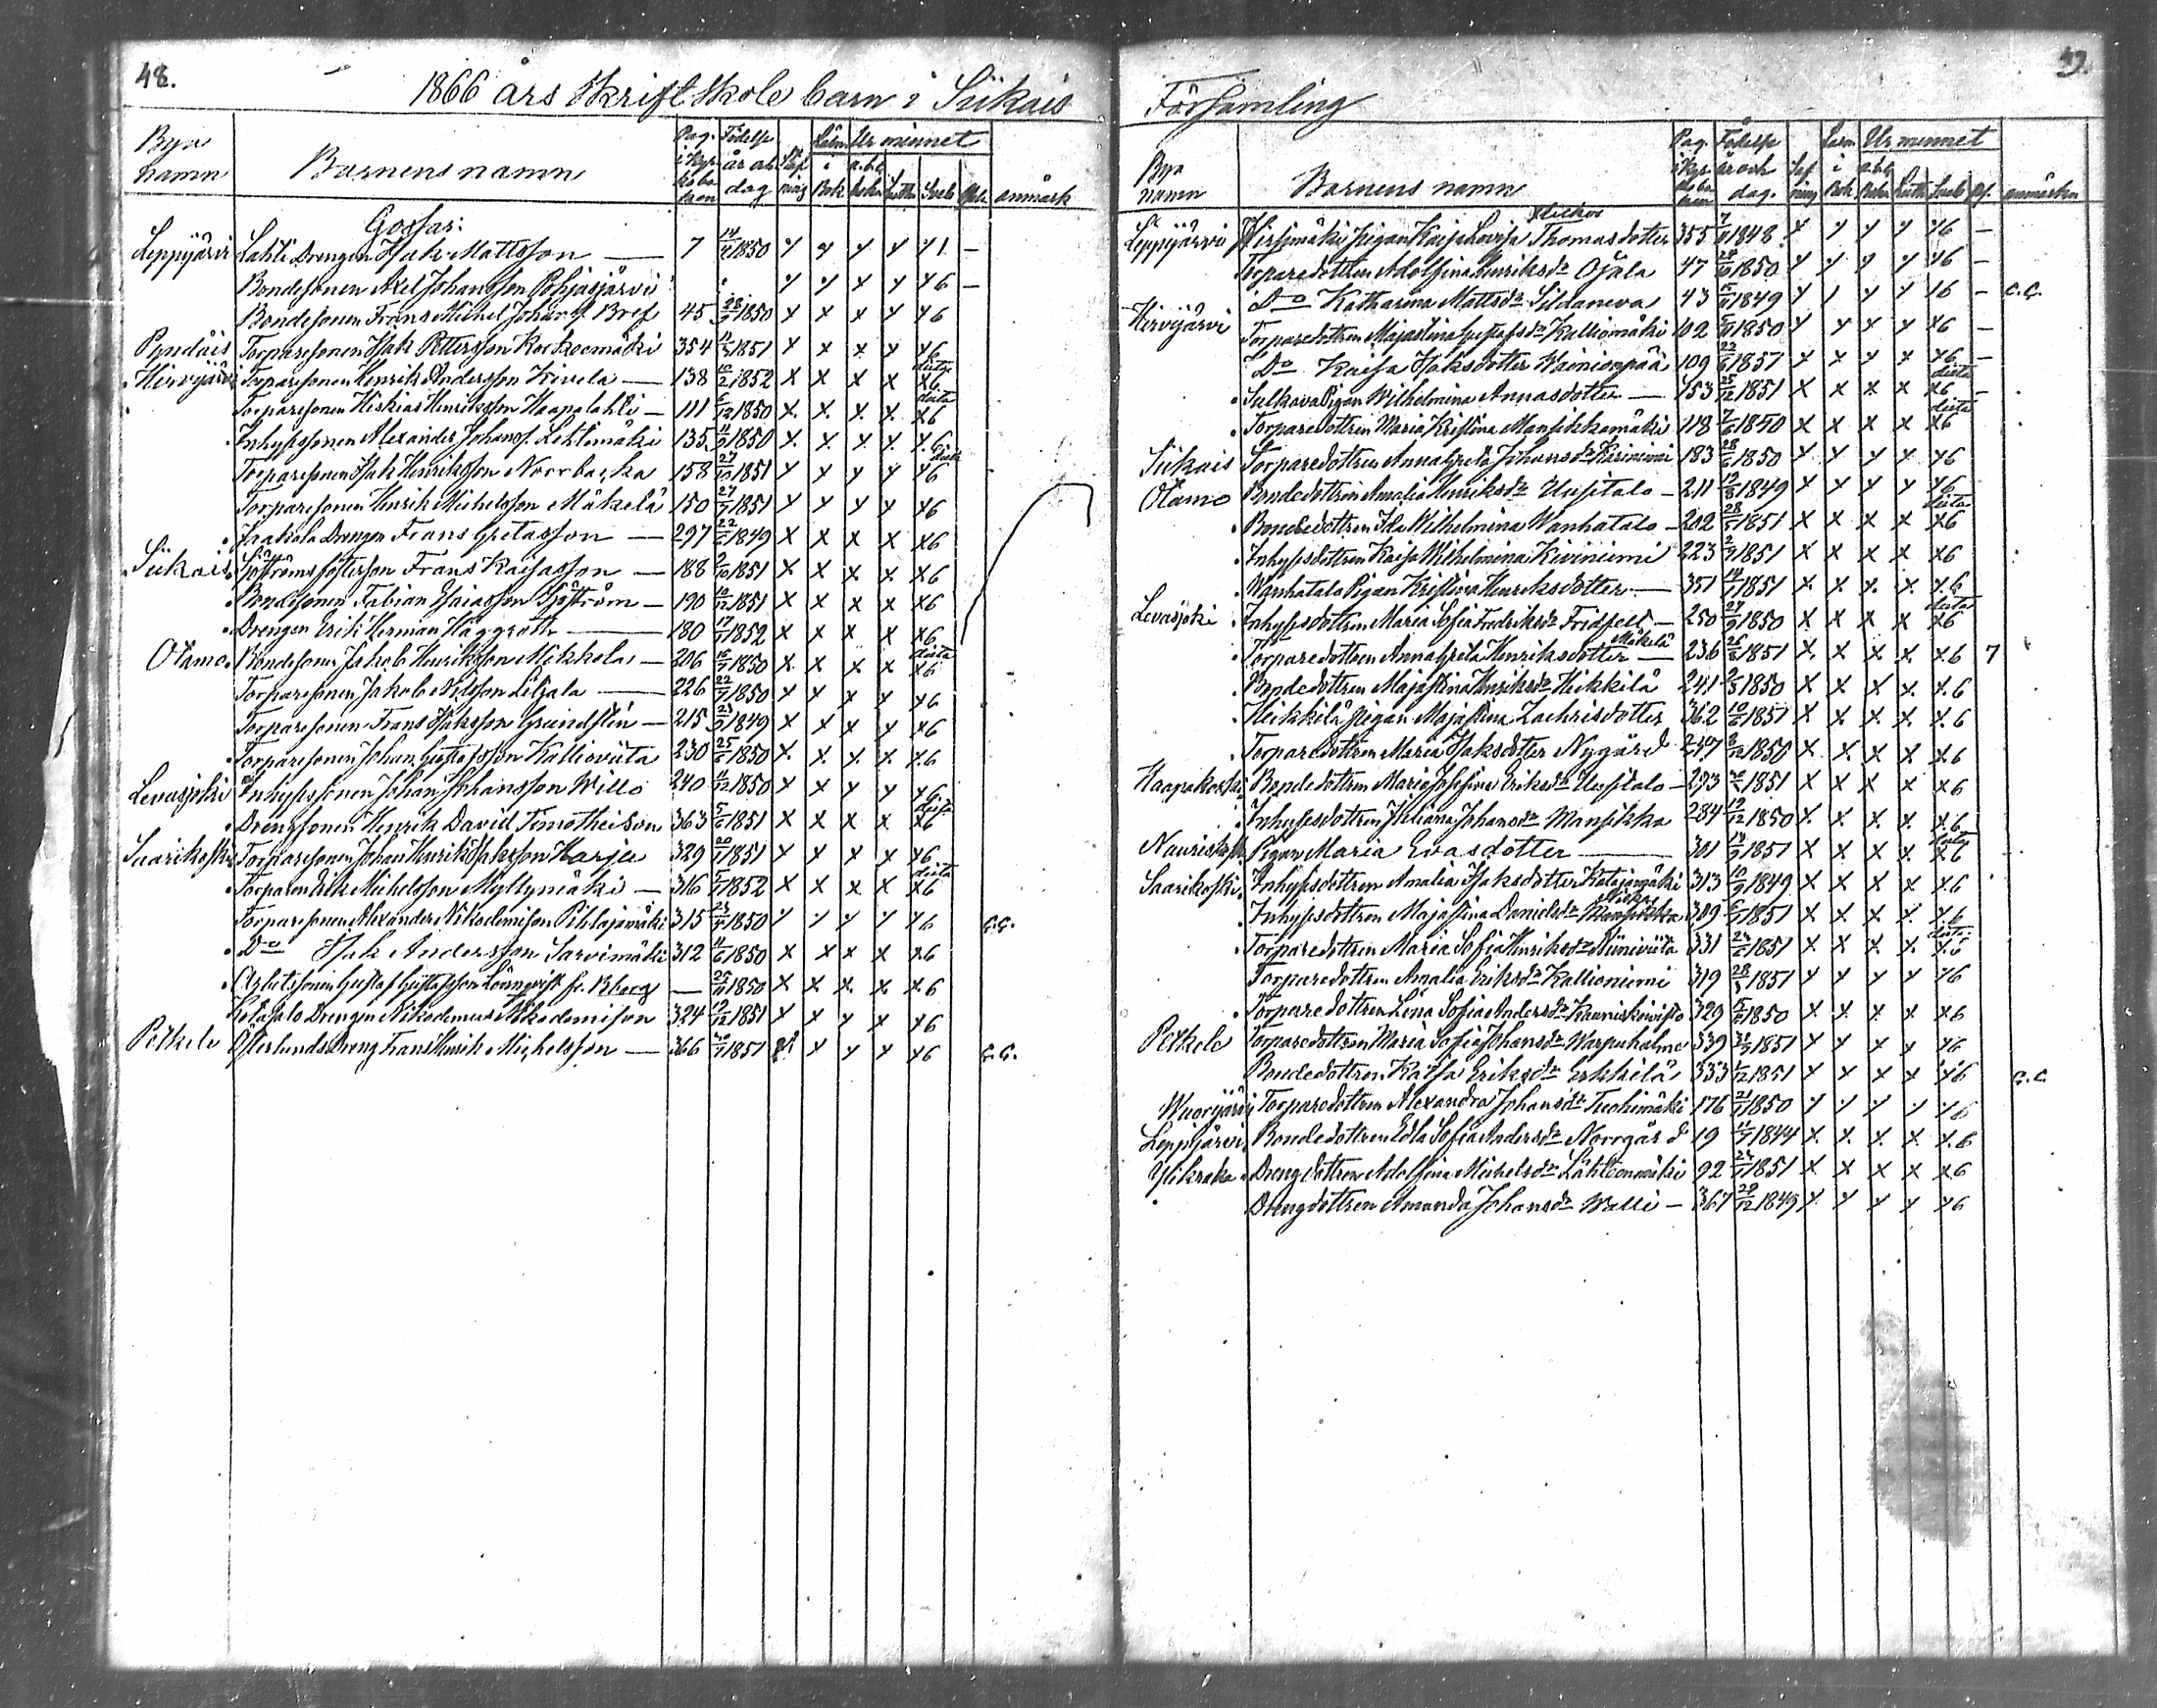 48.
1866 års Skriftskole barn i Siikais
Byn namn Barnens namn Pag. i kyrkoboken Födelse år och dag Stafning Läsn. i Bok Ur minnet a.b.c. boken Luth. Sveb. anmärk
Gossar:
Leppijärvi Lahti Drengen Isak Mattsson — 7 14/4 1850 x x x x x 1 —
Bondesonen Axel Johansson Pohjasjärvi x x x x x6 —
Bondesonen Frans Michel Johans. Bref 45 28/9 1850 x x x x x6
Pyndäis Torparesonen Isak Pettersson Korkeemäki 354 11/3 1851 x x x x x6
Hirvijärvi Torparesonen Henrik Andersson Kivelä — 138 10/2 1852 x x x x dista x6
Torparesonen Hiskias Henriksson Haapalahti — 111 6/12 1850 x x x x dista x6
Inhysessonen Alexander Johans. Lehtimäki 135 11/9 1850 x x x x x6
Torparesonen Isak Henriksson Norrbacka 158 27/10 1851 x x x x dista x6
Torparesonen Henrik Michelsson Mäkelä 150 27/7 1851 x x x x x6
Jaakola Drengen Frans Gretasson — 297 22/5 1849 x x x x x6
Siikais Sjöströms fosterson Frans Kaisasson — 188 9/10 1851 x x x x x6
Bondesonen Fabian Esaiasson Sjöström — 190 10/12 1851 x x x x x6
Drengen Erik Herman Häggroth — 180 17/1 1852 x x x x x6
Otamo Bondesonen Jakob Henriksson Mikkola — 206 16/9 1850 x x x x dista x6
Torparesonen Jakob Nilsson Liljala — 226 22/7 1850 x x x x x6
Torparesonen Frans Isaksson Grundstén — 215 23/9 1849 x x x x x6
Torparesonen Johan Gustafsson Kallioviita 230 25/6 1850 x x x x x6
Levasjoki Inhysessonen Johan Johansson Willo 240 11/12 1850 x x x x x6
Drengsonen Henrik David Timotheison 363 5/6 1851 x x x x dista x6
Saarikoski Torparesonen Johan Henrik Isaksson Harju 329 20/1 1851 x x x x x6
Torparen Erik Michelsson Myllymäki — 316 5/1 1852 x x x x dista x6
Torparesonen Alexander Nikodemisson Pihlajamäki 315 23/9 1850 x x x x x6 C.C.
Do Isak Andersson Sarvimäki 312 11/6 1850 x x x x x6
Arbetssonen Gustaf Gustafsson Lönnqvist fr. Bberg — 25/11 1850 x x x x x6
Kotasalo Drengen Nikodemus Nikodemison 324 12/12 1851 x x x x x6
Petkele Österlunds Dreng Frans Henrik Michelsson — 366 20/7 1851 x x x x6 C.C.
49.
Församling
Bya namn Barnens namn Pag. i kyrkoboken Födelse år och dag. Stafning Läsn i Bok Ur minnet a.b.c. boken Luth Sveb Ps. anmärkn
Flickor
Leppijärvi Hirsimäki pigan Kaisa Lovisa Thomasdotter 355 7/9 1848 x x x x x6 —
Torparedottren Adolfina Henriksdr Ojala 47 28/10 1850 x x x x x6 —
Do Katharina Mattsdr Sildaneva 43 15/9 1849 x x x x x6 — C.C.
Hirvijärvi Torparedottren Majastina Gustafsdr Kalliomäki 102 5/9 1850 x x x x x6 —
Do Kaisa Isaksdotter Wainionpää 109 22/6 1851 x x x x x6 —
Sulkava Pigan Wilhelmina Annasdotter — 153 25/12 1851 x x x x dista x6 —
Torparedottren Maria Kristina Mansikkamäki 118 7/6 1850 x x x x dista x6
Siikais Torparedottren Anna Greta Johansdr Kariniemi 183 28/6 1850 x x x x x6
Otamo Bondedottren Amalia Henriksdr Uusitalo — 211 12/8 1849 x x x x x6
Bondedottren Ida Wilhelmina Wanhatalo — 202 28/5 1851 x x x x dista x6
Inhysesdottren Kaisa Wilhelmina Kiviniemi 223 2/9 1851 x x x x x6
Wanhatalo Pigan Kristina Henriksdotter — 351 14/7 1851 x x x x x6
Levasjoki Inhysesdottren Maria Sofia Fredriksdr Fridfelt — 250 27/9 1850 x x x x dista x6
Torparedottren Anna Greta Henriksdotter Mäkelä — 236 26/6 1851 x x x x x6 7
Bondedottren Majastina Henriksdr Heikkilä 241 9/3 1850 x x x x x6
Heikkilä Pigan Majastina Zachrisdotter 362 10/6 1851 x x x x x6
Torparedottren Maria Isaksdotter Nygård 247 8/12 1850 x x x x x6
Haapakoski Bondedottren Maria Josefina Eriksdr Uusitalo — 293 1851 x x x x x6
Inhysesdottren Juliana Johansdr Mansikka 284 19/12 1850 x x x x x6
Pigan Maria Evasdotter — 301 13/9 1851 x x x x dista x6
Saarikoski Inhysesdottren Amalia Isaksdotter Katajamäki 313 10/9 1849 x x x x x6
Inhysesdottren Majastina Danielsdr 309 6/5 1851 x x x x x6
Torparedottren Maria Sofia Henriksdr Niiniviita 331 24/2 1851 x x x x dista x6
Torparedottren Amalia Eriksdr Kallioniemi 319 28/3 1851 x x x x x6
Torparedottren Lena Sofia Andersdr Kauniskoivisto 329 15/6 1850 x x x x x6
Petkele Torparedottren Maria Sofia Johansdr Warpuhalme 339 31/3 1851 x x x x x6
Bondedottren Kaisa Eriksdr Erkkilä 333 5/12 1851 x x x x x6 C.C.
Wuorijärvi Torparedottren Alexandra Johansdr Tuohimäki 176 21/1 1850 x x x x x6
Leppijärvi Bondedottren Edla Sofia Andersdr Norrgård 19 11/7 1844 x x x x x6
Ylikraka Drengdottren Adolfina Michelsdr Lähteenmäki 92 24/1 1851 x x x x x6
Drengdottren Amanda Johansdr Walli — 367 29/12 1849 x x x x x6